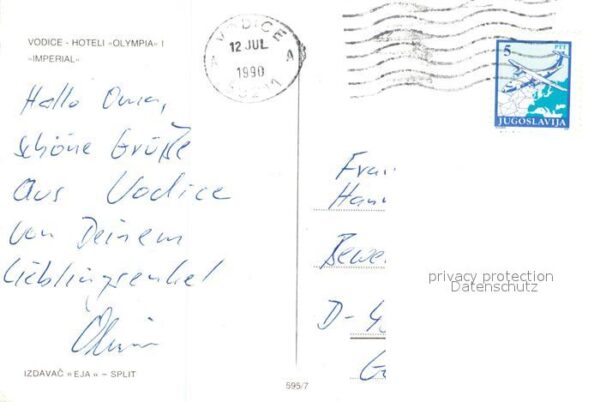 VODICE - HOTELI »OLYMPIA« I
»IMPERIAL«
VODICE
12 JUL
1990
5
PTT
JUGOSLAVIJA
Hallo Oma,
schöne Grüße
aus Vodice
von Deinem
Lieblingsenkel
Frau
Han
Bewe
D-
G
privacy protection
Datenschutz
IZDAVAČ »EJA« – SPLIT
595/7